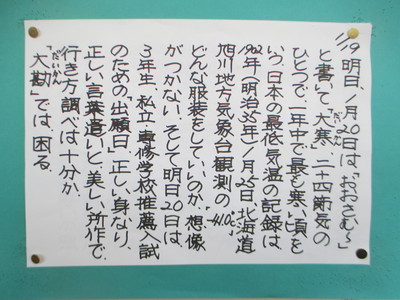 1/19 明日、1月20日は「おおさむ」
と書いて、大寒。二十四節気の
だいかん
ひとつで一年中で最も寒い頃を
いう。日本の最低気温の記録は
1902年(明治35年)1月25日、北海道
旭川地方気象台観測の-41.0℃。
どんな服装をしていいのか、想像
がつかない。そして明日20日は
3年生、私立・専修学校推薦入試
のための出願日。正しい身なり、
正しい言葉遣いと、美しい所作で。
行き方調べは十分か。
だいかん
「大勘」では、困る。